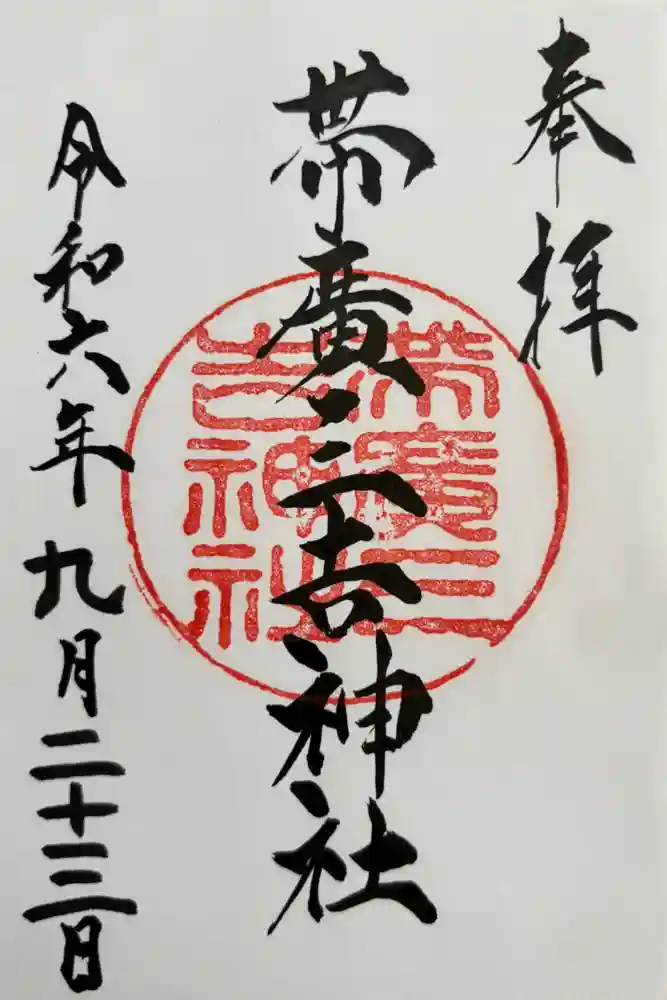 奉拝
帯廣三吉神社
帯廣三吉神社
令和六年九月二十三日